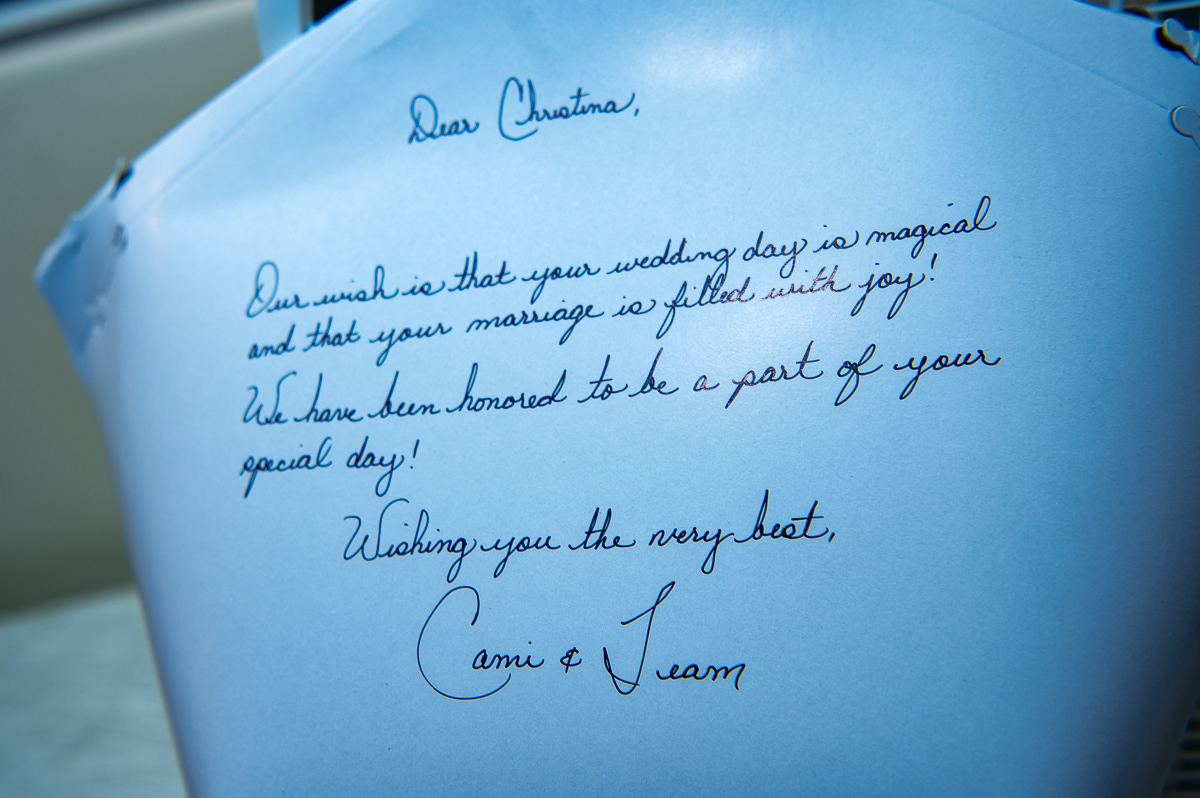 Dear Christina,
Our wish is that your wedding day is magical
and that your marriage is filled with joy!
We have been honored to be a part of your
special day!
Wishing you the very best,
Cami & Team